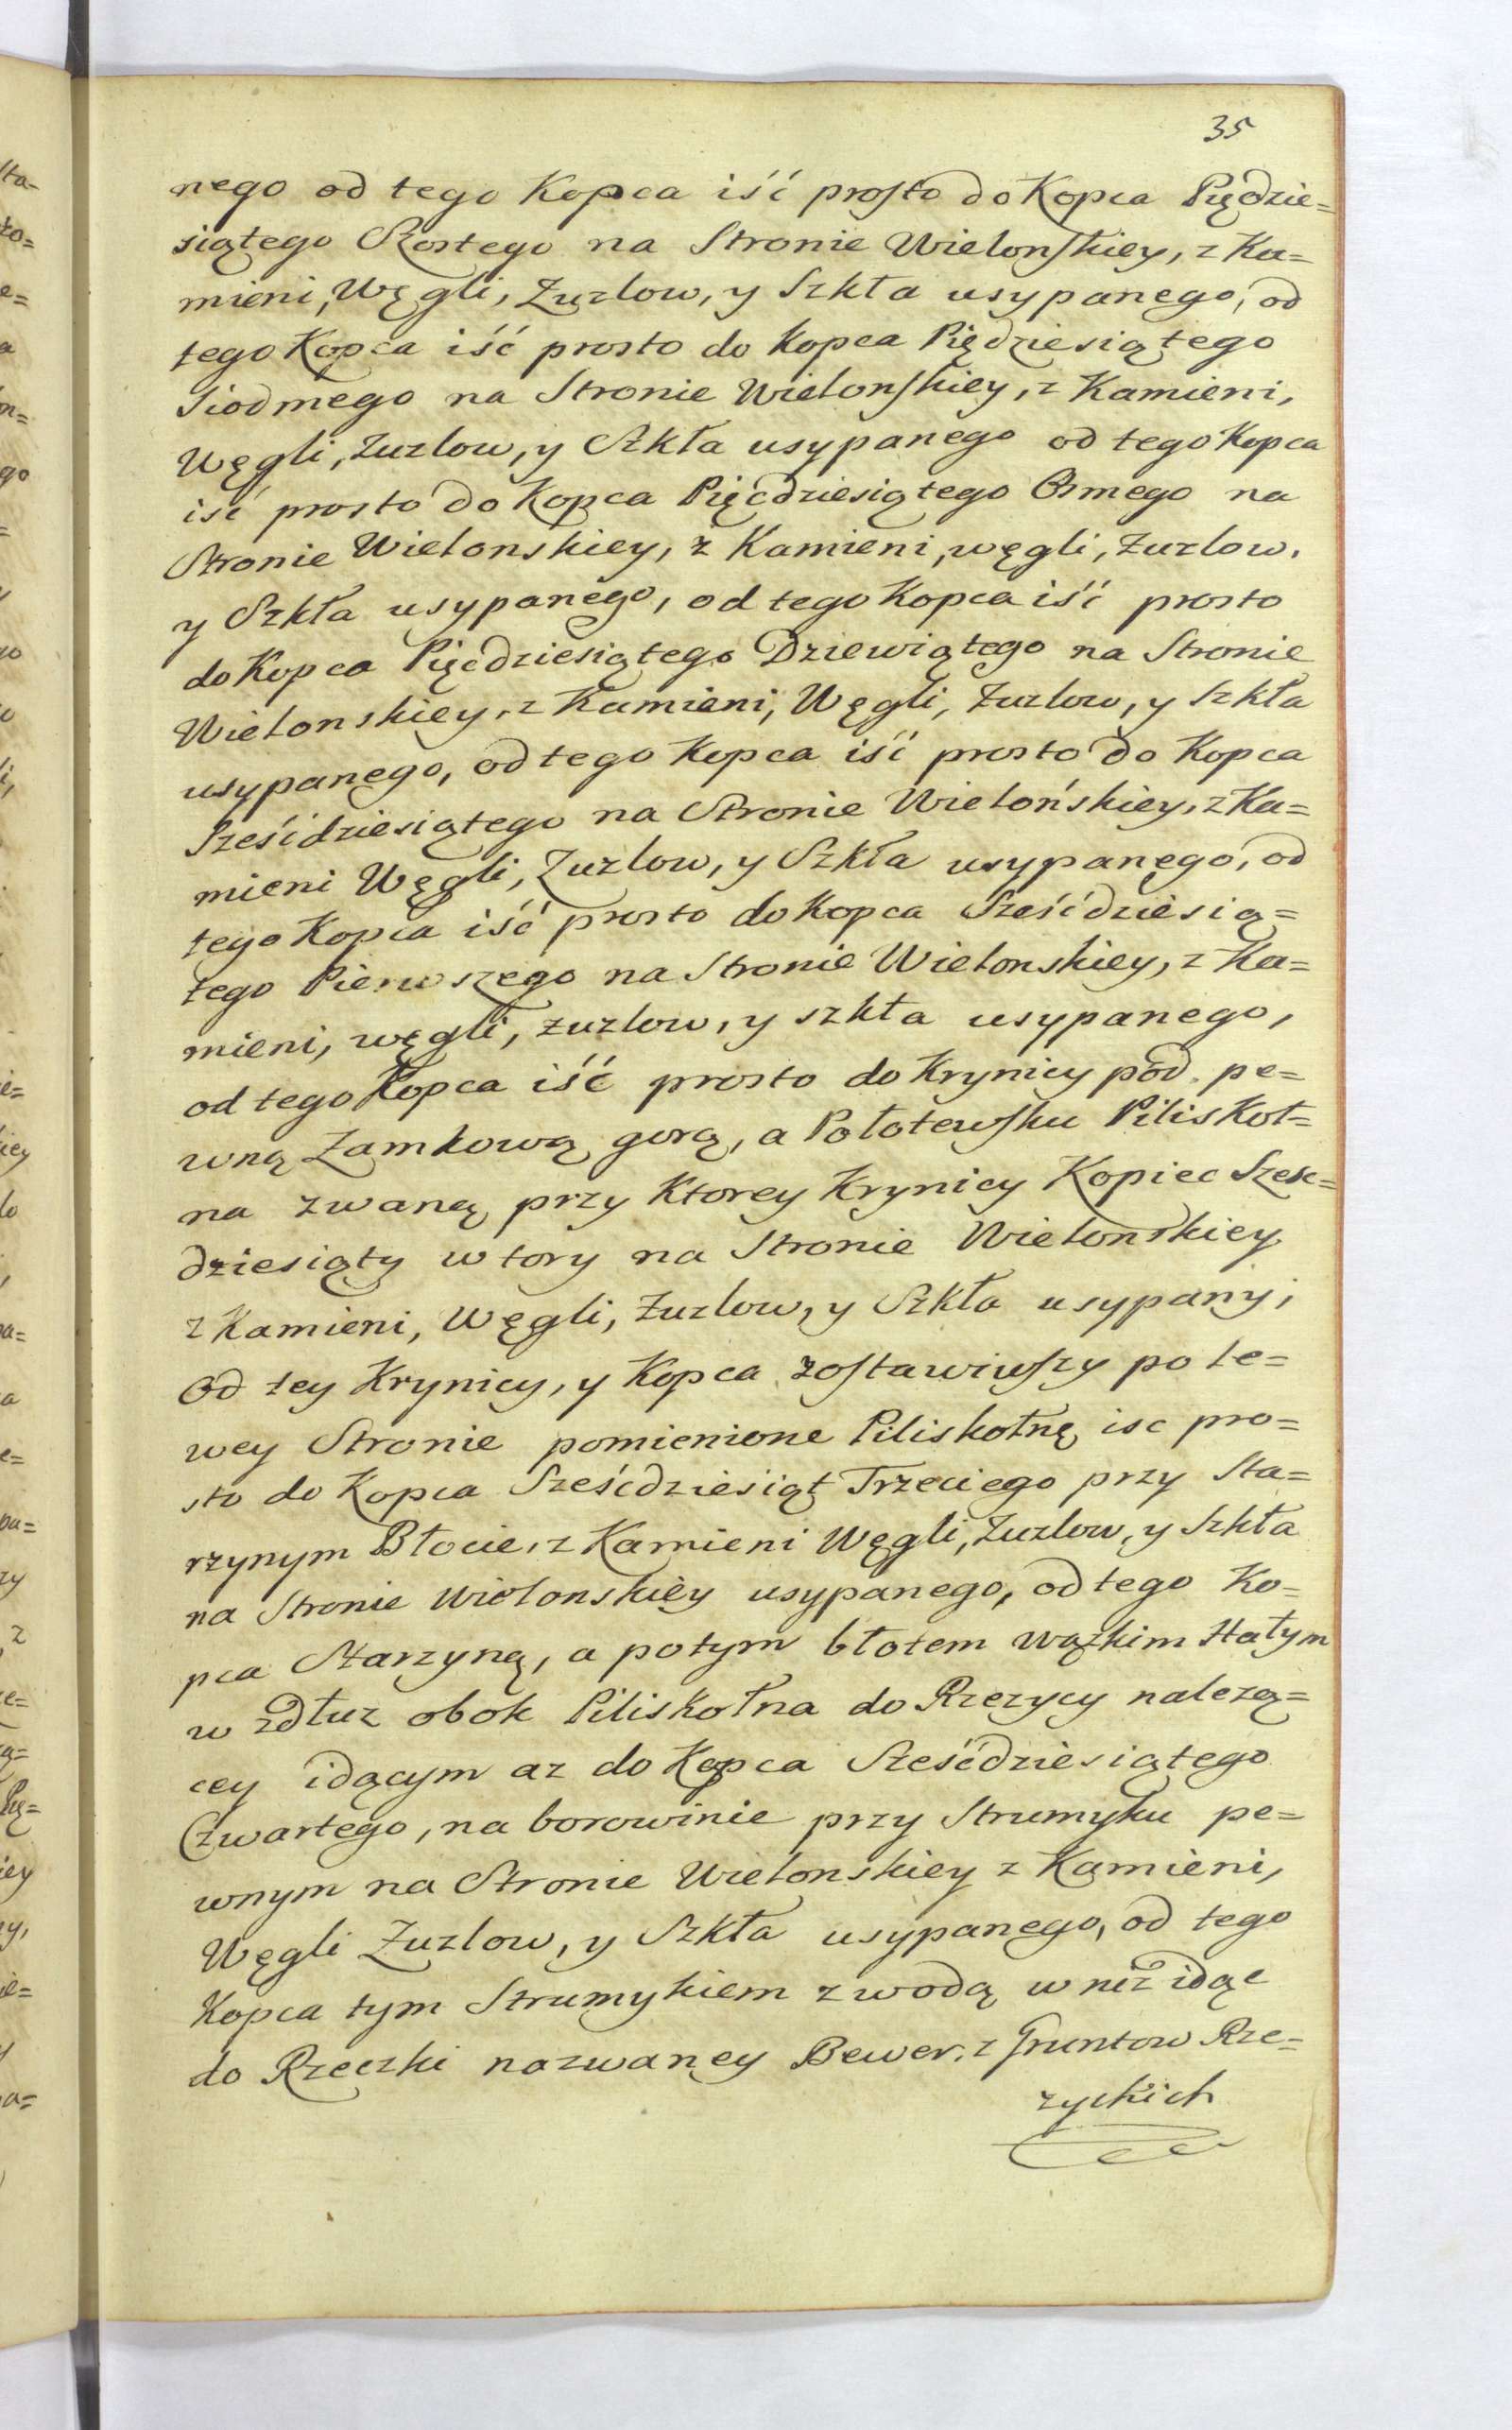 35
nego od tego Kopca iść prosto do Kopca Piędzie=
siątego Szostego na Stronie Wielonskiey, z Ka=
mieni, Węgli, Zuzlow, y Szkła usypanego, od
tego Kopca iść prosto do Kopca Piędziesiątego
Siodmego na Stronie Wielonskiey, z Kamieni,
Węgli, Zuzlow, y Szkła usypanego od tego Kopca
iść prosto do Kopca Pięćdziesiątego Osmego na
Stronie Wielonskiey, z Kamieni, węgli, Zuzlow,
y Szkła usypanego, od tego Kopca iść prosto
do Kopca Pięćdziesiątego Dziewiątego na Stronie
Wielonskiey, z Kamieni, Węgli, Zuzlow, y Szkła
usypanego, od tego Kopca iść prosto do Kopca
Sześćdziesiątego na Stronie Wielońskiey, z Ka=
mieni Węgli, Zuzlow, y Szkła usypanego, od
tego Kopca iść prosto do Kopca Sześćdziesią=
tego Pierwszego na Stronie Wielonskiey, z Ka=
mieni, węgli, zuzlow, y szkła usypanego,
od tego Kopca iść prosto do Krynicy pod pe=
wną Zamkową gorą, a Połotewsku Piliskoł=
na zwaną przy Ktorey Krynicy Kopiec Szesc=
dziesiąty wtory na Stronie Wielonskiey
z Kamieni, Węgli, Zuzlow, y Szkła usypany,
Od tey Krynicy, y Kopca zostawiwszy po le=
wey Stronie pomienione Piliskołnę isc pro=
sto do Kopca Sześćdziesiąt Trzeciego przy Sta=
rzynym Błocie, z Kamieni Węgli, Zuzlow, y Szkła
na Stronie Wielonskiey usypanego, od tego Ko=
pca Starzyną, a potym błotem wązkim Stałym
w zdłuz obok Piliskołna do Rzezycy nalezą=
cey idącym az do Kopca Sześćdziesiątego
Czwartego, na borowinie przy Strumyku pe=
wnym na Stronie Wielonskiey z Kamieni,
Węgli Zuzlow, y Szkła usypanego, od tego
Kopca tym Strumykiem z wodą w niz idąc
do Rzeczki nazwaney Bewer, z Gruntow Rze=
zyckich